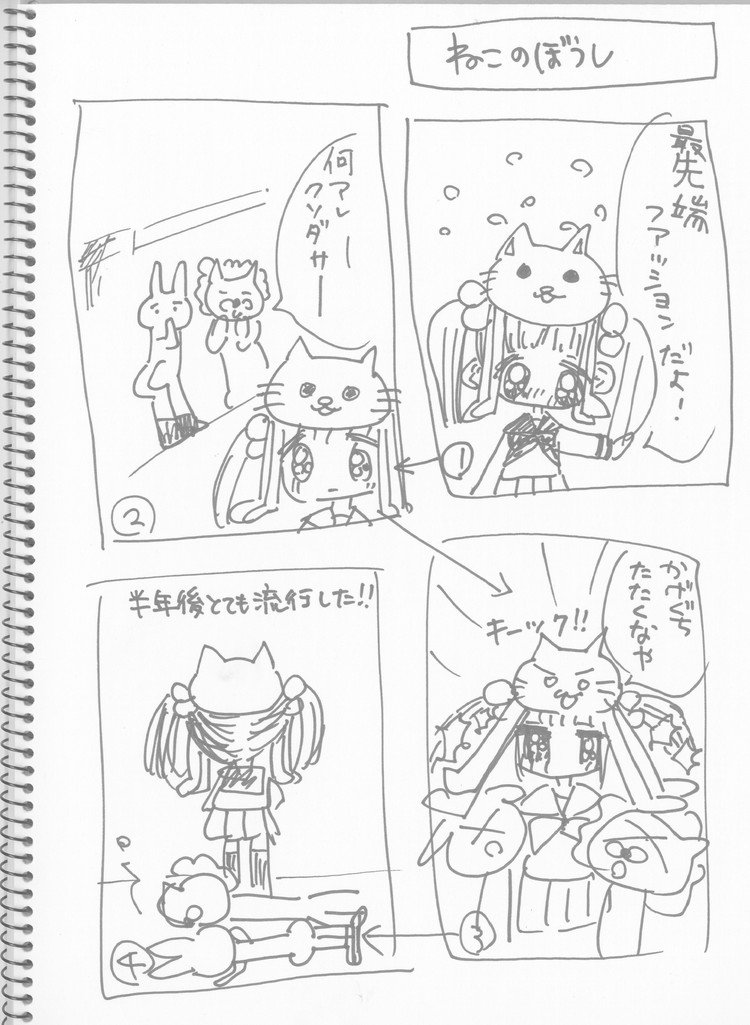 ねこのぼうし
最先端
ファッションだよ!
①
何アレー
クソダサー
②
かげぐち
たたくなや
キーック!!
3
半年後とても流行した!!
④